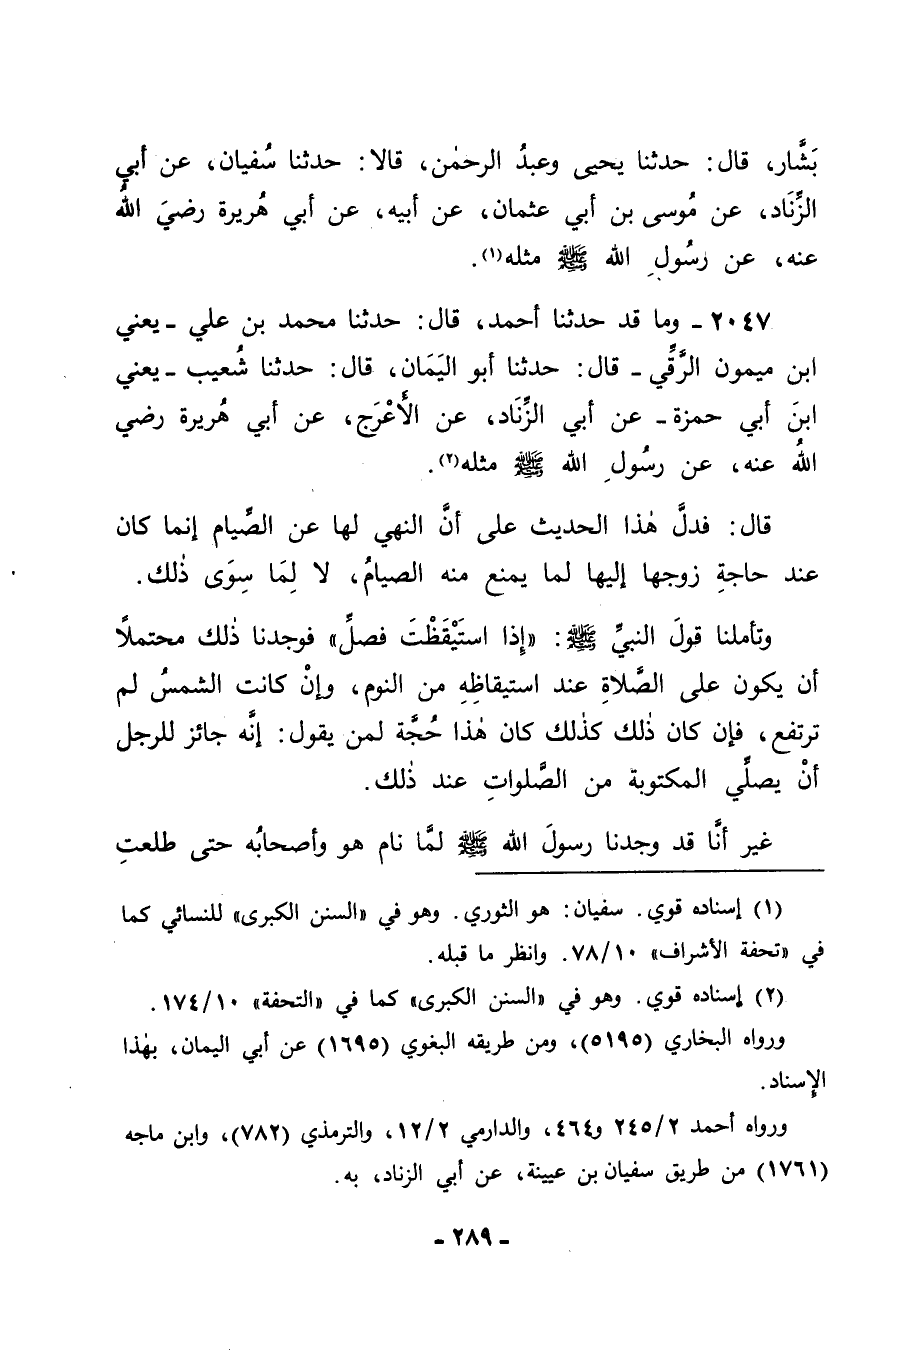 بَشَّار، قال: حدثنا يحيى وعبدُ الرحمٰن، قالا: حدثنا سُفيان، عن أبي
الزِّنَاد، عن مُوسى بن أبي عثمان، عن أبيه، عن أبي هُريرة رضيَ اللهُ
عنه، عن رسُولِ الله ﷺ مثله(١).
٢٠٤٧ ـ وما قد حدثنا أحمد، قال: حدثنا محمد بن علي ـ يعني
ابن ميمون الرَّقِّي ـ قال: حدثنا أبو اليَمَان، قال: حدثنا شُعيب ـ يعني
ابنَ أبي حمزة ـ عن أبي الزِّنَاد، عن الأَعْرَج، عن أبي هُريرة رضي
اللهُ عنه، عن رسُولِ الله ﷺ مثله(٢).
قال: فدلَّ هٰذا الحديث على أنَّ النهي لها عن الصِّيام إنما كان
عند حاجةِ زوجها إليها لما يمنع منه الصيامُ، لا لِمَا سِوَى ذٰلك.
وتأملنا قولَ النبيِّ ﷺ: «إِذا استَيْقَظْتَ فصلِّ» فوجدنا ذٰلك محتملًا
أن يكون على الصَّلاةِ عند استيقاظِهِ من النوم، وإنْ كانت الشمسُ لم
ترتفع، فإن كان ذٰلك كذٰلك كان هٰذا حُجَّة لمن يقول: إنَّه جائز للرجل
أنْ يصلِّي المكتوبة من الصَّلواتِ عند ذٰلك.
غير أنَّا قد وجدنا رسولَ الله ﷺ لمَّا نام هو وأصحابُه حتى طلعتِ
(١) إسناده قوي. سفيان: هو الثوري. وهو في «السنن الكبرى» للنسائي كما
في «تحفة الأشراف» ٧٨/١٠. وانظر ما قبله.
(٢) إسناده قوي. وهو في «السنن الكبرى» كما في «التحفة» ١٧٤/١٠.
ورواه البخاري (٥١٩٥)، ومن طريقه البغوي (١٦٩٥) عن أبي اليمان، بهٰذا
الإسناد.
ورواه أحمد ٢٤٥/٢ و٤٦٤، والدارمي ١٢/٢، والترمذي (٧٨٢)، وابن ماجه
(١٧٦١) من طريق سفيان بن عيينة، عن أبي الزناد، به.
- ٢٨٩ -